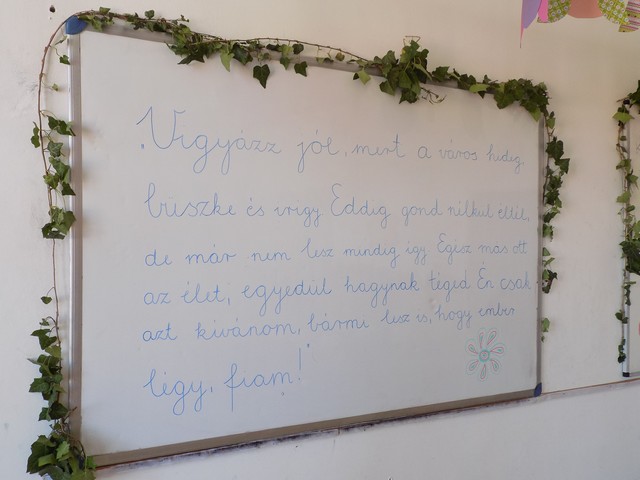 „Vigyázz jól, mert a város hideg
büszke és irigy Eddig gond nélkül éltél,
de már nem lesz mindig így. Egész más ott
az élet, egyedül hagynak téged. Én csak
azt kívánom, bármi lesz is, hogy ember
légy, fiam!"